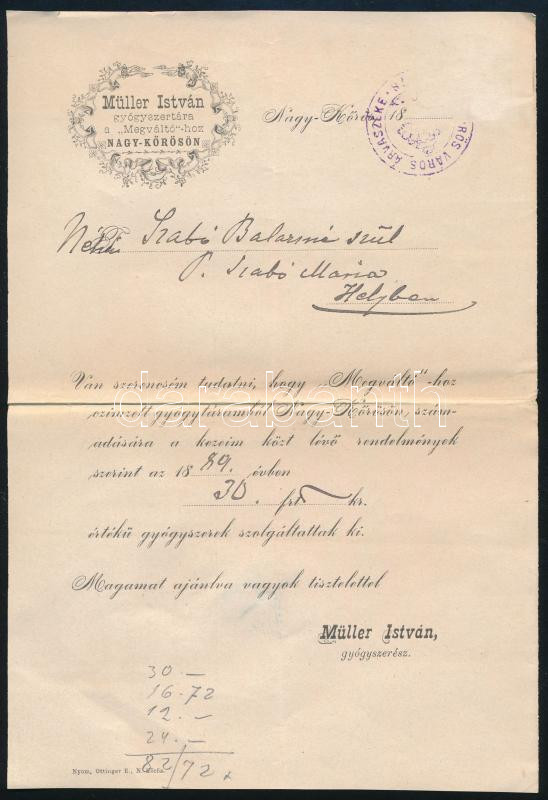 Müller István
gyógyszertára
a „Megváltó"-hoz
NAGY-KŐRÖSÖN
Nagy-Kőrös 18
RÖS VÁROS ÁRVASZÉKE
Szabó Balazsné szül
P. Szabó Mária
Helyben
Van szerencsém tudatni, hogy „Megváltó"-hoz
czimzett gyógytáramból Nagy-Kőrösön, szám-
adására a kezeim közt lévő rendelmények
szerint az 1889. évben
30. frt — kr.
értékü gyógyszerek szolgáltattak ki.
Magamat ajánlva vagyok tisztelettel
Müller István,
gyógyszerész.
30 —
16.72
12. —
24. —
82/72
Nyom. Ottinger E., N.-Kőrös.
darabanth